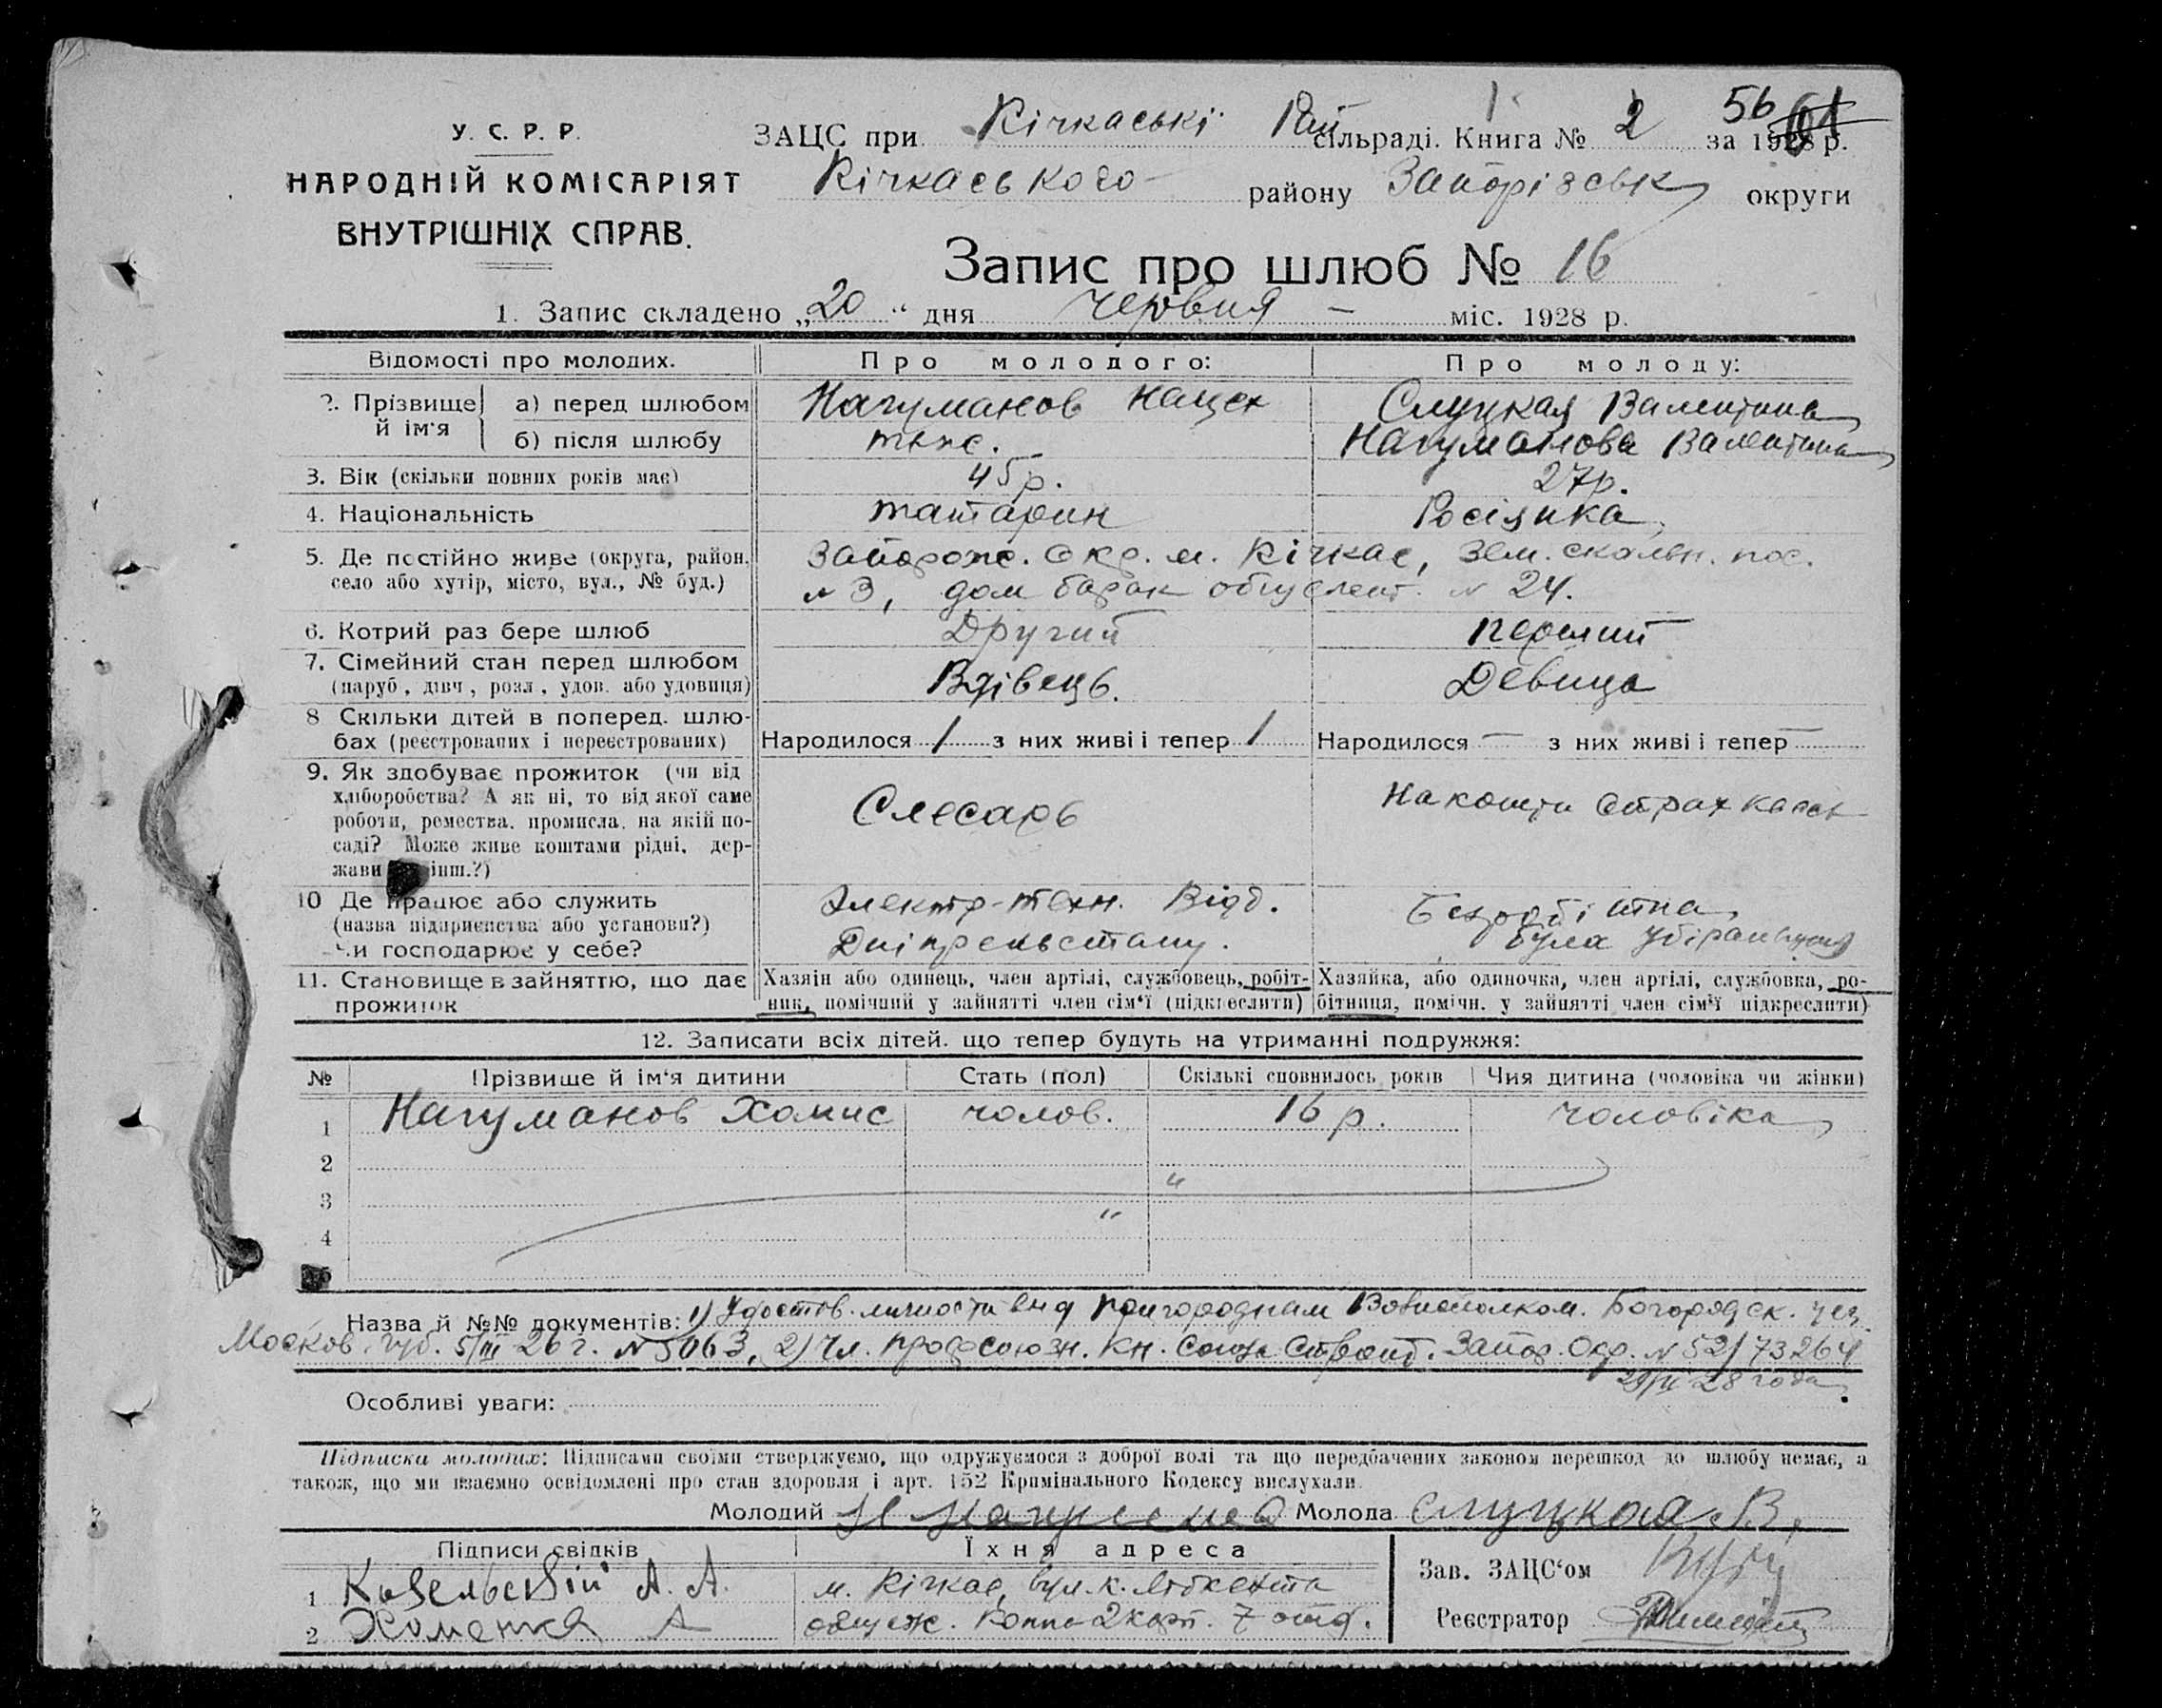 У. С. Р. Р.
НАРОДНІЙ КОМІСАРІЯТ
ВНУТРІШНІХ СПРАВ.
ЗАЦС при Кічкаські Рай сільраді. Книга № 2 за 1928 р.
56
Кічкаського району Запорізськ округи
Запис про шлюб № 16
1. Запис складено „20“ дня червня — міс. 1928 р.
Відомості про молодих. Про молодого: Про молоду:
2. Прізвище й ім'я а) перед шлюбом Нагуманов Слуцкая Валентина
б) після шлюбу тже. Нагуманова Валентина
3. Вік (скільки повних років має) 45 р. 27 р.
4. Національність татарин Росіянка
5. Де постійно живе (округа, район, Запорож. Окр. м. Кічкас, пос.
село або хутір, місто, вул., № буд.) № 3, дом барак № 24.
6. Котрий раз бере шлюб Другий перший
7. Сімейний стан перед шлюбом Вдівець. Девица
(паруб., дівч., розл., удов. або удовиця)
8 Скільки дітей в поперед. шлю-
бах (реєстрованих і нереєстрованих) Народилося 1 з них живі і тепер 1 Народилося — з них живі і тепер —
9. Як здобуває прожиток (чи від
хліборобства? А як ні, то від якої саме Слесарь На кошти страхкасси
роботи, ремества, промисла, на якій по-
саді? Може живе коштами рідні, дер-
жави інш.?)
10 Де працює або служить Электр-техн. Відд. Безробітна,
(назва підприємства або установи?) була
чи господарює у себе? Дніпрельстану.
11. Становище в зайняттю, що дає Хазяін або одинець, член артілі, службовець, робіт- Хазяйка, або одиночка, член артілі, службовка, ро-
прожиток ник, помічний у зайнятті член сім'ї (підкреслити) бітниця, помічн. у зайнятті член сім'ї підкреслити)
12. Записати всіх дітей, що тепер будуть на утриманні подружжя:
№ Прізвище й ім'я дитини Стать (пол) Скількі сповнилось років Чия дитина (чоловіка чи жінки)
1 Нагуманов Хамис чолов. 16 р. чоловіка
2
3
4
5
Назва й №№ документів: 1) Удостов. личности выд Пригородним Волисполком. Богородск. уез.
Москов. губ. 5/III 26 г. № 5063, 2) Чл. профсоюзн. кн. Союза Строит. Запор. Окр. № 52/73264
28 года
Особливі уваги:
Підписка молодих: Підписами своїми стверджуємо, що одружуємося з доброї волі та що передбачених законом перешкод до шлюбу немає, а
також, що ми взаємно освідомлені про стан здоровля і арт. 152 Кримінального Кодексу вислухали.
Молодий Н Нагуманов Молода Слуцкая В.
Підписи свідків Їхня адреса
1 А. А. м. Кічкас, вул. К. Лібкнехта
2 Хоменко А общеж. 7 отд.
Зав. ЗАЦС'ом
Реєстратор